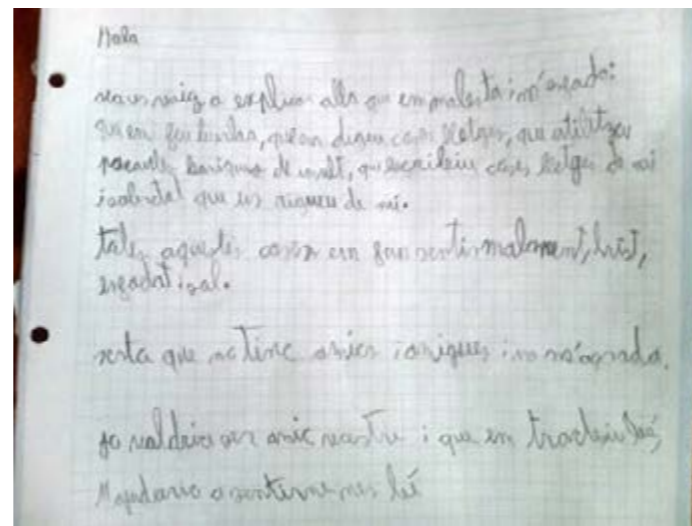 Hola
vaig a explicar allò que em molesta i m'enfada:
que em feu burla, que em digueu coses lletges, que utilitzeu
de insult, que escribiu coses lletges de mi
i sobretot que us rigueu de mi.
totes aquestes coses em fan sentir malament, trist,
enfadat i sol.
que no tinc amics i amigues i no m'agrada.
jo voldria ser amic vostre i que em tracteu bé,
M'ajudaria a sentirme més bé